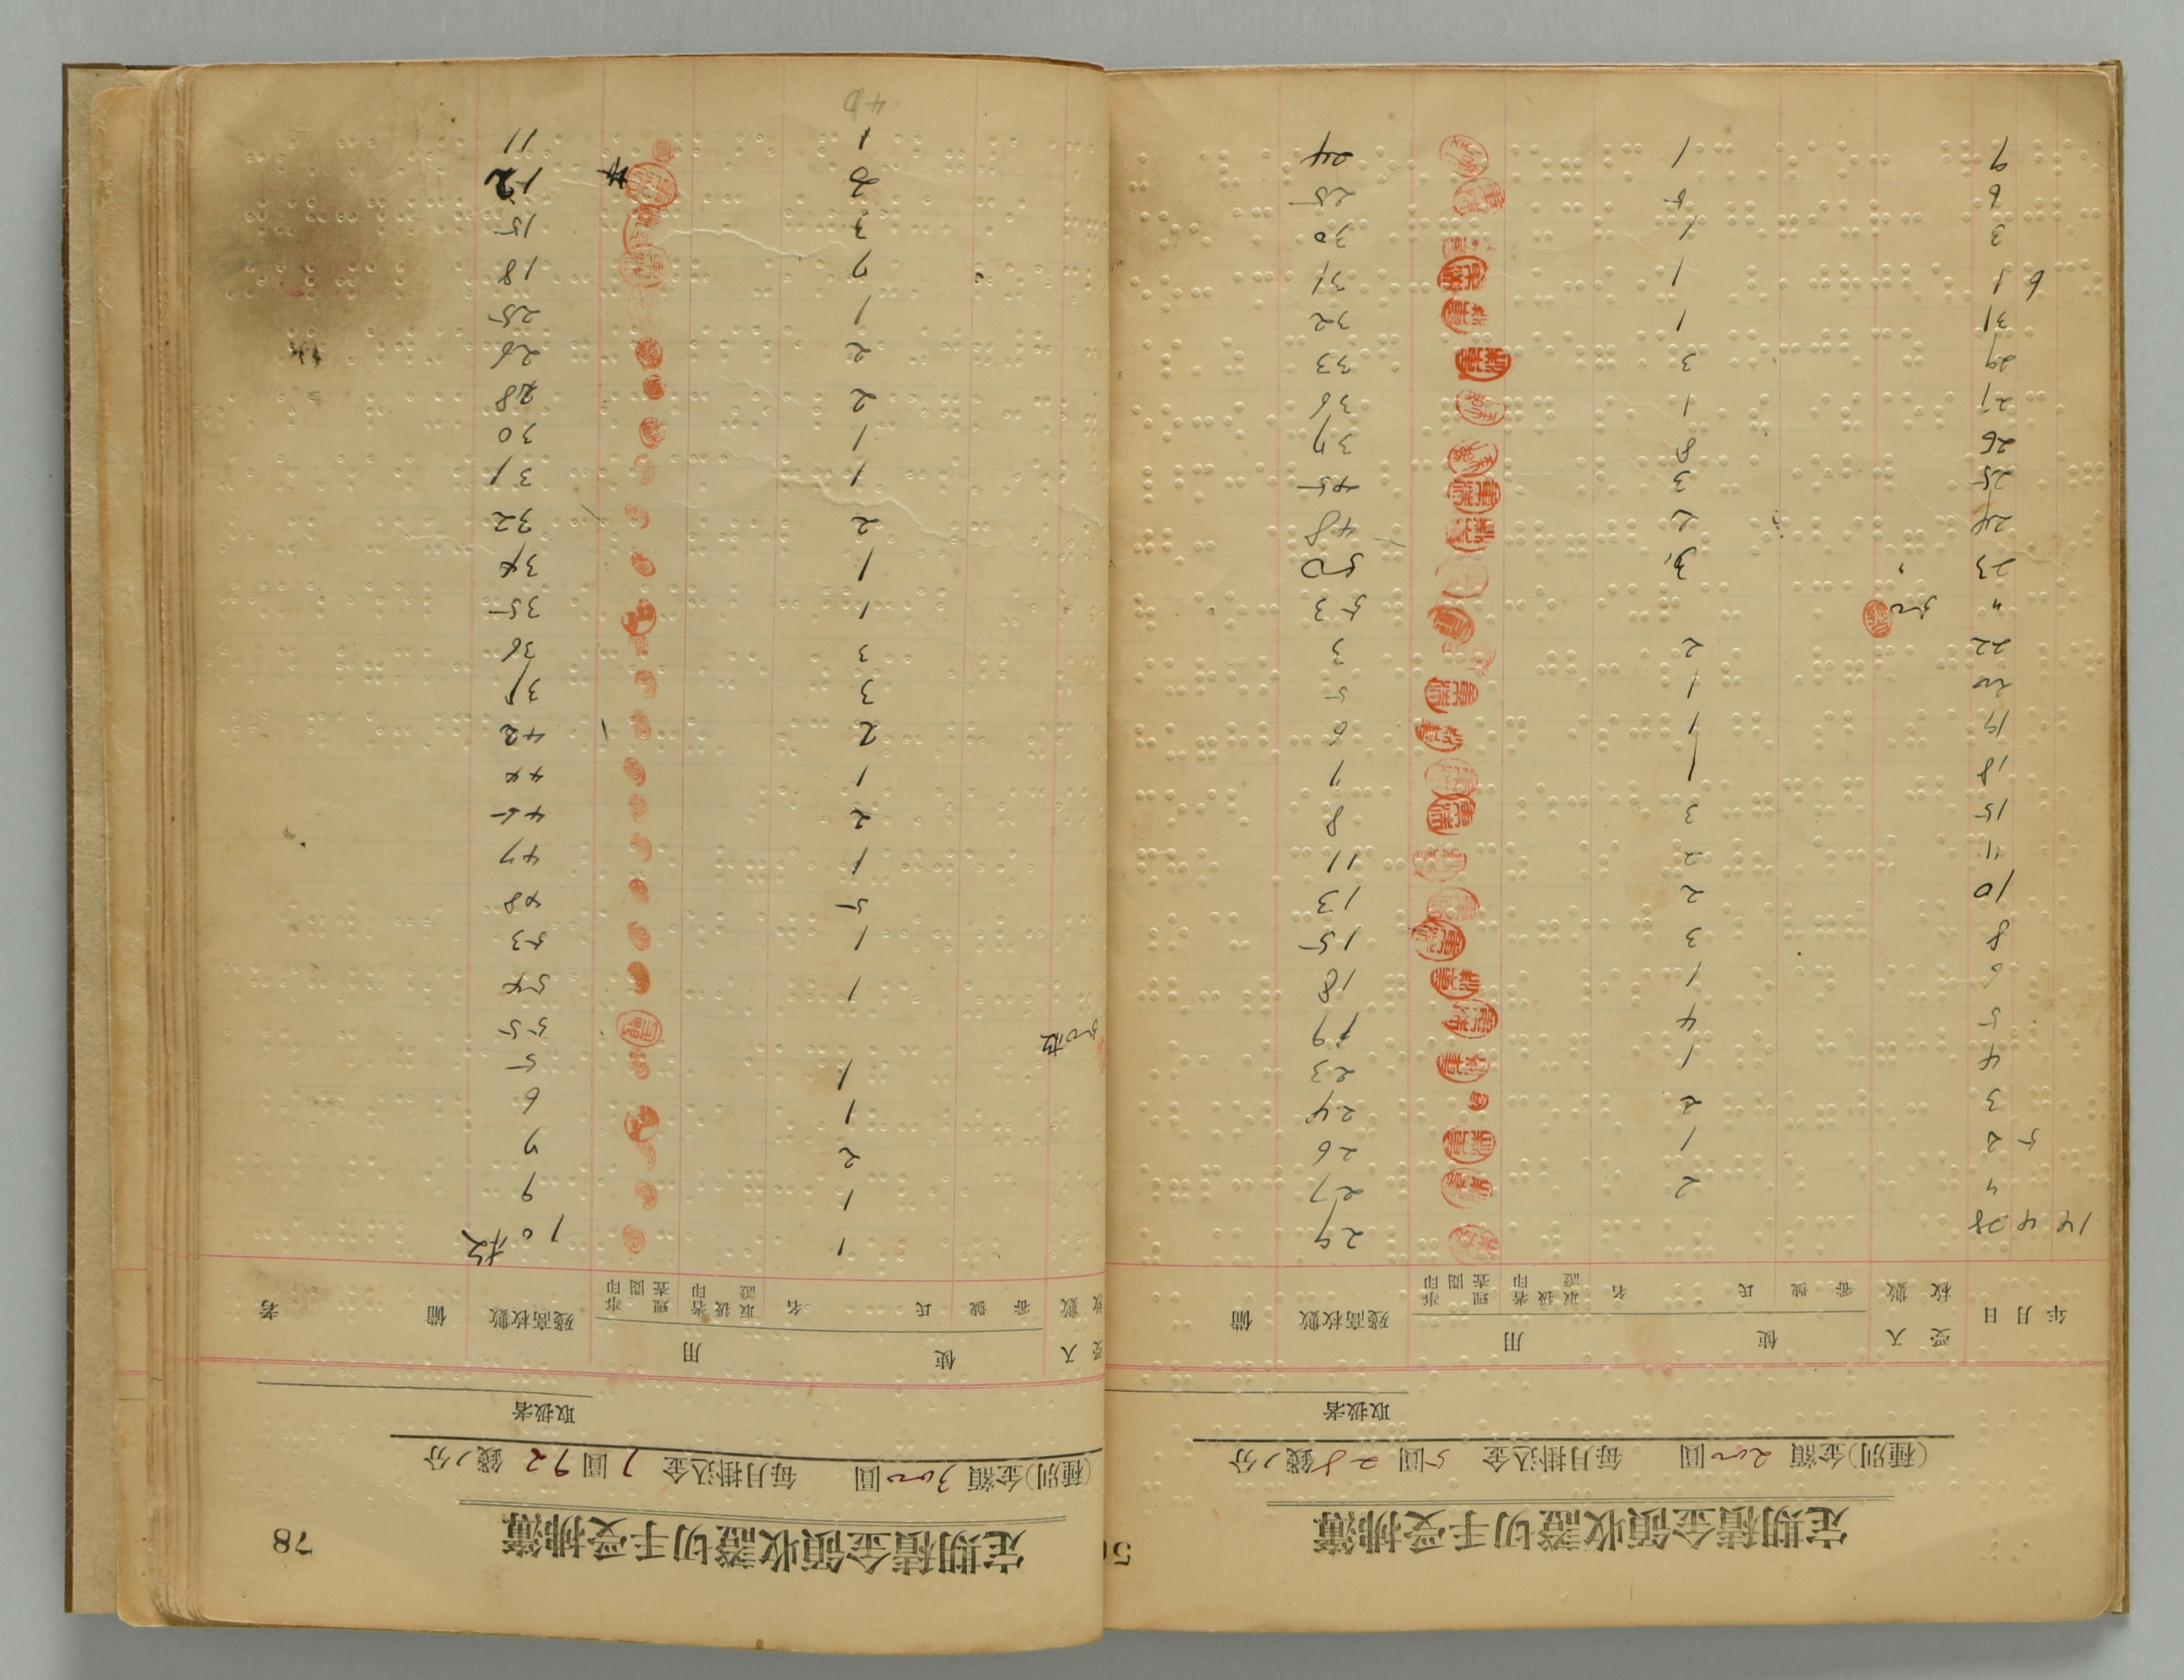 定期積金領收證切手受拂簿
(種別)金額 200圓 毎月掛込金 5圓28錢ノ分
取扱者
年 月 日 受入 使用 殘高枚數 備
枚數 番號 氏名 取扱者證印 理事查閱印
14 4 28 29
〃 2 27
5 2 1 26
3 2 24
4 1 23
5 4 19
6 1 18
8 3 15
10 2 13
11 2 11
15 3 8
18 1 7
19 1 6
20 1 5
22 2 3
〃 50 53
23 3 50
24 2 48
25 3 45
26 8 37
27 1 36
29 3 33
31 1 32
6 1 1 31
3 1 30
6 5 25
9 1 24
78
定期積金領收證切手受拂簿
(種別)金額 300圓 毎月掛込金 7圓92錢ノ分
取扱者
受入 使用 殘高枚數 備考
枚數 番號 氏名 取扱者證印 理事查閱印
1 10枚
1 9
2 7
1 6
1 5
50枚 55
1 54
1 53
5 48
1 47
2 45
1 44
2 42
3 39
3 36
1 35
1 34
2 32
1 31
1 30
2 28
2 26
1 25
7 18
3 15
3 12
1 11